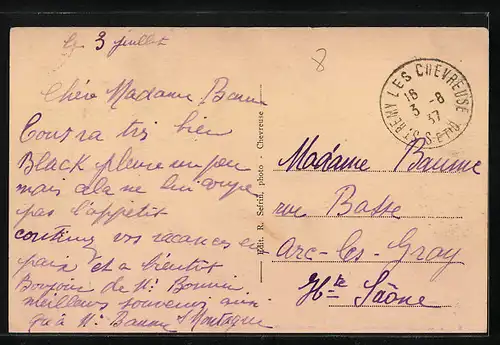 le 3 juillet
8
Chère Madame Baume
Tout va très bien
Black pleure un peu
mais cela ne lui coupe
pas l'appétit
continuez vos vacances en
paix et à bientôt
Bonjour de Mr Bonnin
meilleurs souvenirs ainsi
qu'à Mr Baume Montagne
Edit. R. Sefrin, photo - Chevreuse
ST REMY LES CHEVREUSE
16
3 -8
37
S.-&-OISE
Madame Baume
rue Basse
Arc-les-Gray
Hte Saône